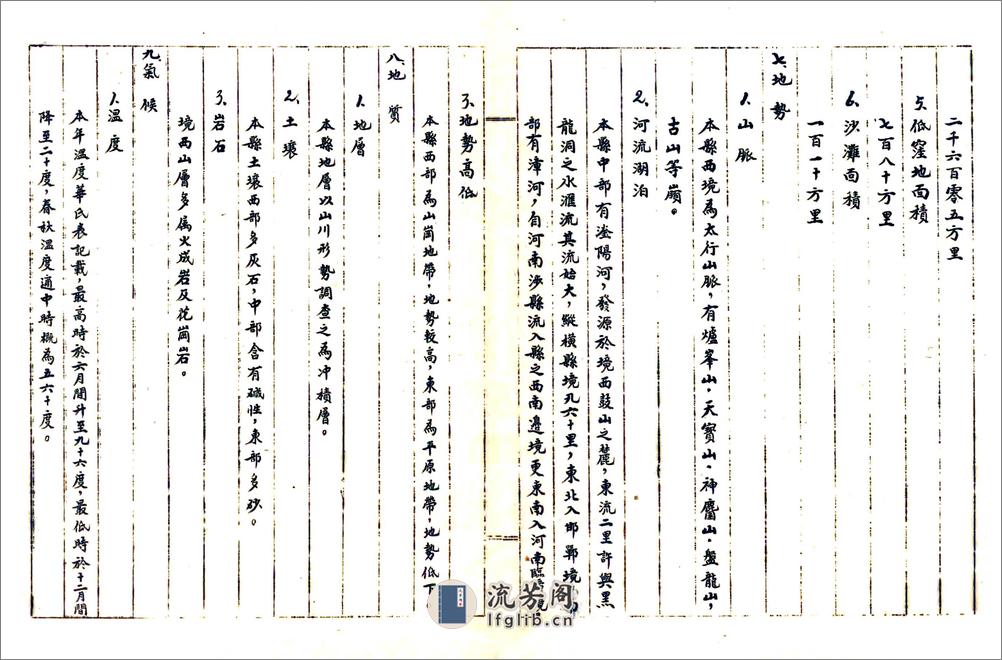 二千六百零五方里
5、低窪地面積
七百八十方里
6、沙灘面積
一百一十方里
七、地勢
1、山脈
本縣西境為太行山脈，有爐峯山，天寶山，神麕山，盤龍山，
古山等崩。
2、河流湖泊
本縣中部有滏陽河，發源於境西鼓山之麓，東流二里許與黑
龍洞之水滙流其流始大，縱橫縣境凡六十里，東北入邯鄲境
部有漳河，自河南涉縣流入縣之西南邊境更東南入河南臨
3、地勢高低
本縣西部為山崗地帶，地勢較高，東部為平原地帶，地勢低下
八、地質
1、地層
本縣地層以山川形勢調查之為冲積層。
2、土壤
本縣土壤西部多灰石，中部含有碱性，東部多砂。
3、岩石
境西山層多屬火成岩及花崗岩。
九、氣候
1、溫度
本年溫度華氏表記載，最高時於六月間升至九十六度，最低時於十二月間
降至二十度，春秋溫度適中時概為五六十度。
流芳阁
lfglib.cn